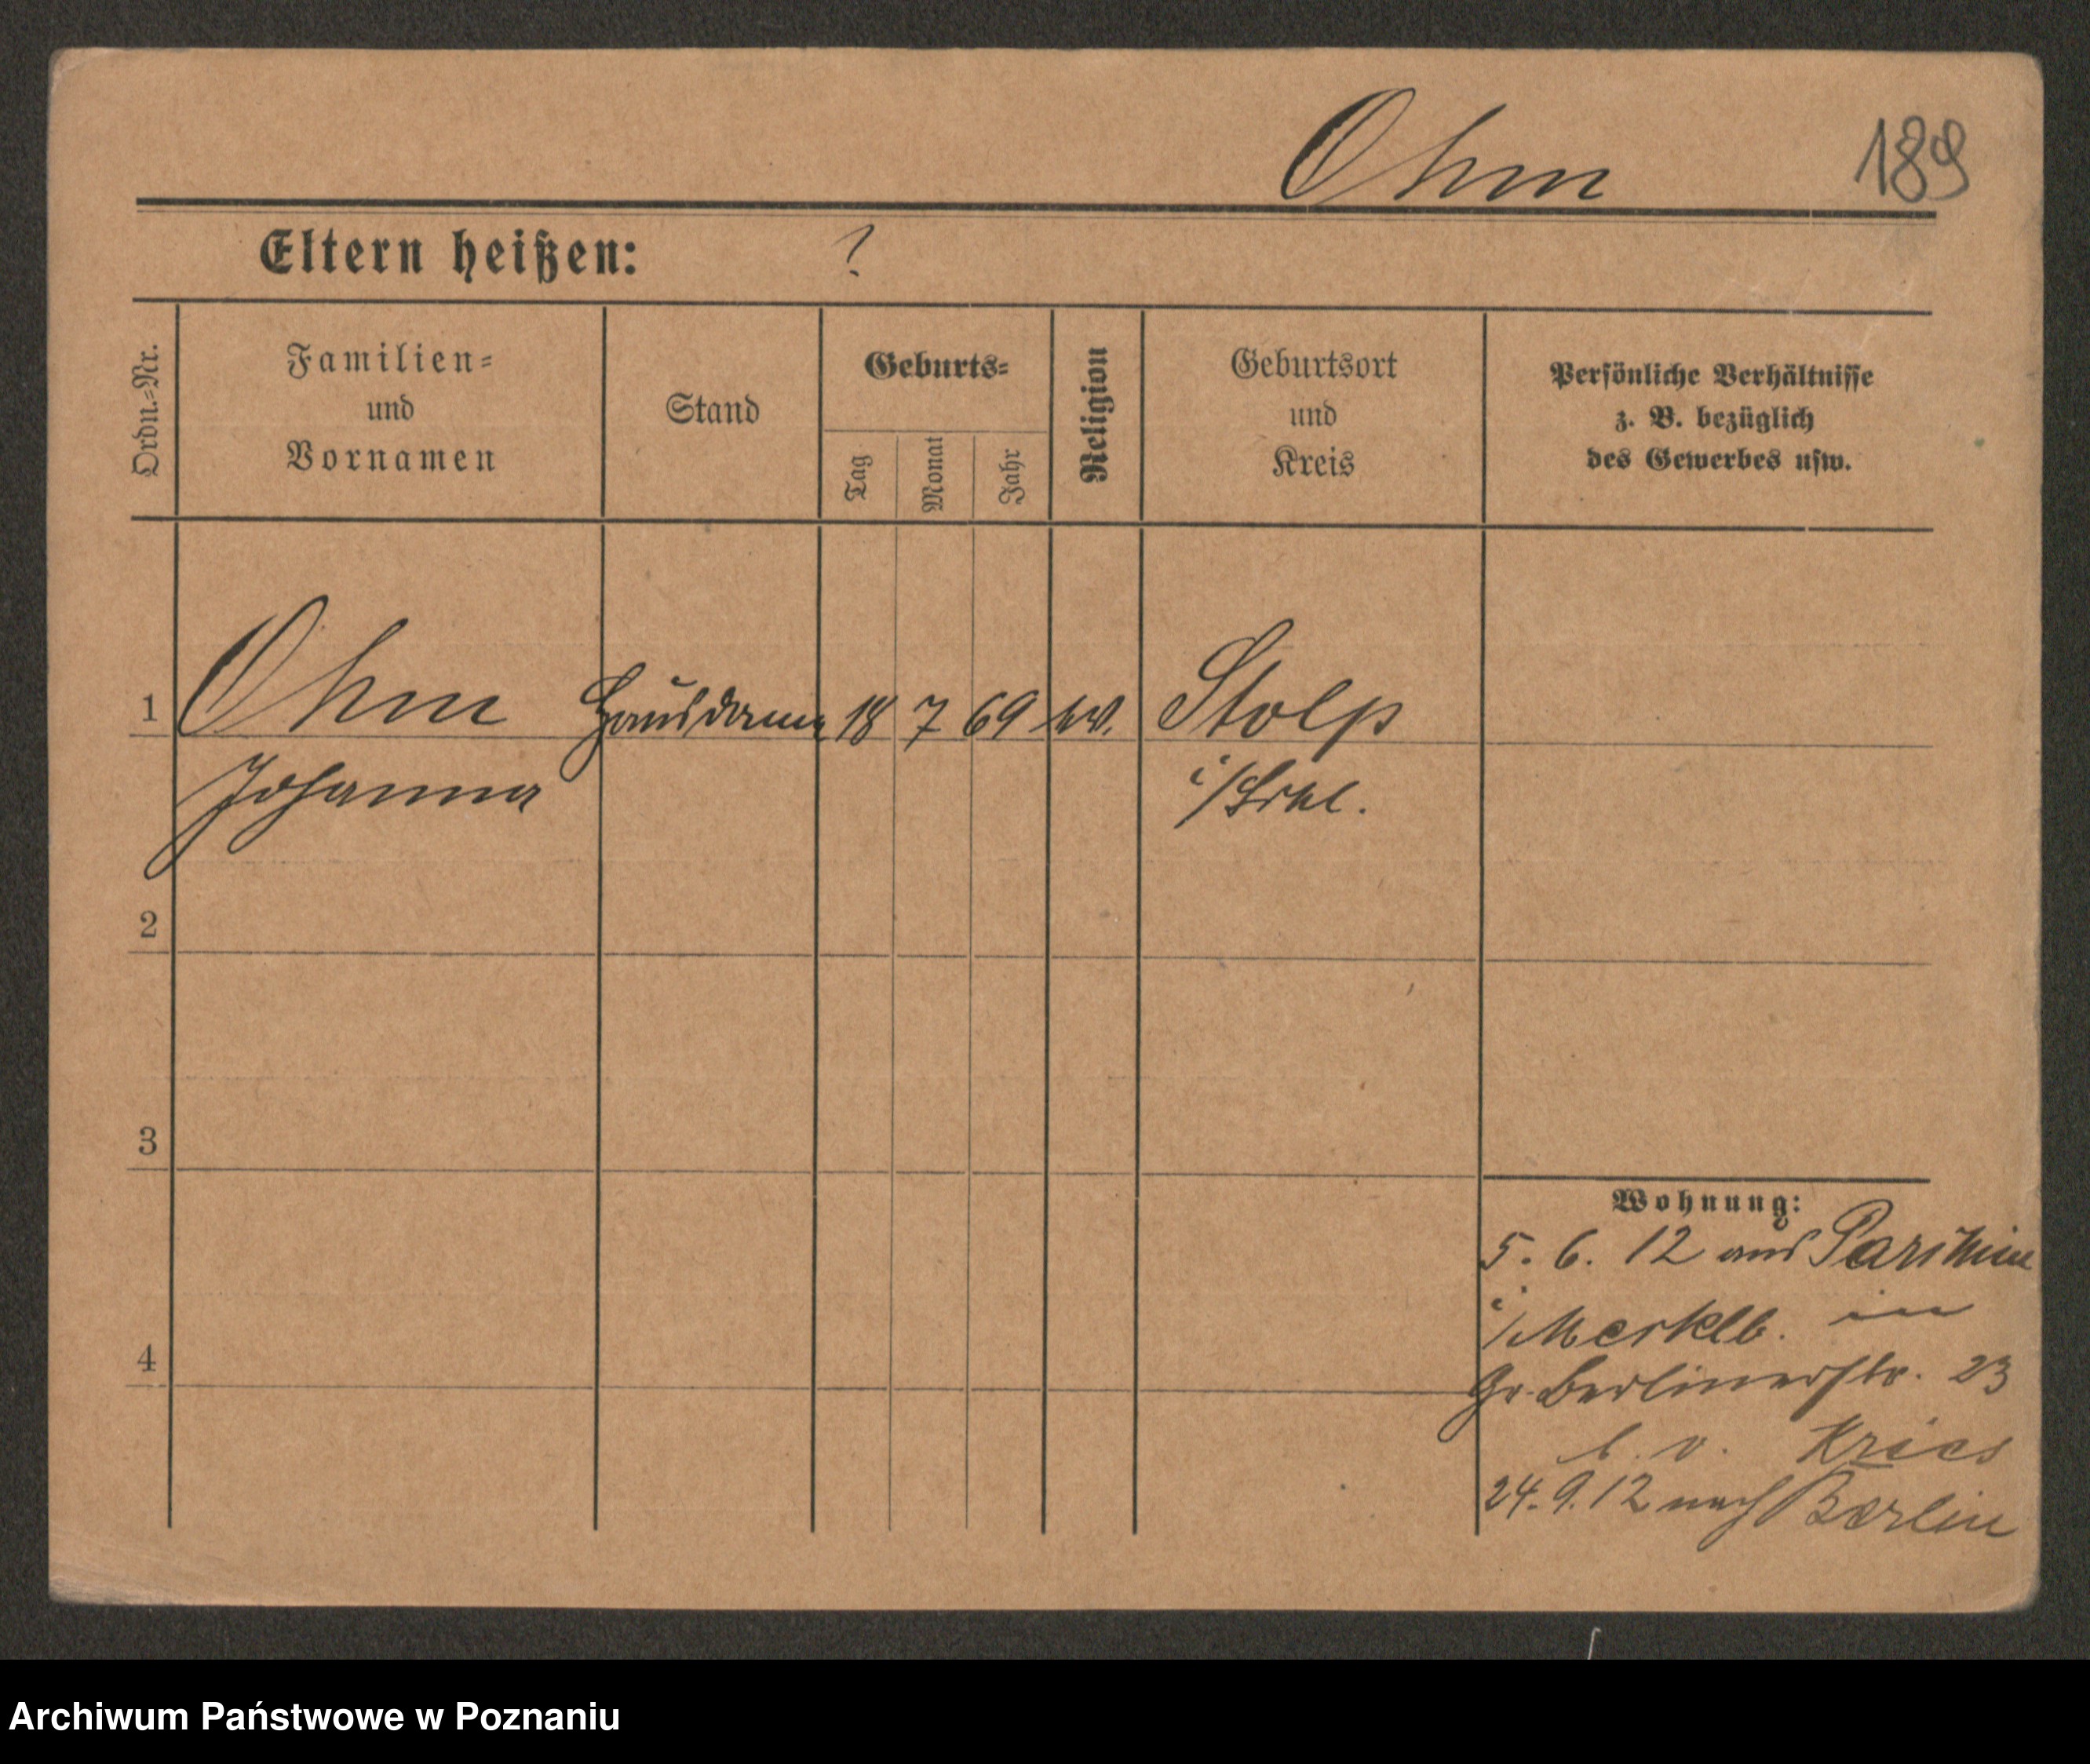 Ohm
189
Eltern heißen: ?
Ordn.=Nr.
Familien=
und
Vornamen
Stand
Geburts=
Tag
Monat
Jahr
Religion
Geburtsort
und
Kreis
Persönliche Verhältnisse
z. B. bezüglich
des Gewerbes usw.
1 Ohm Hausdame 18 7 69 ev. Stolp
Johanna i/
2
3
4
Wohnung:
5. 6. 12 aus Parchim
i/Mecklb. in
Gr. Berlinerstr. 23
b. v. Kries
24. 9. 12 nach Berlin
Archiwum Państwowe w Poznaniu